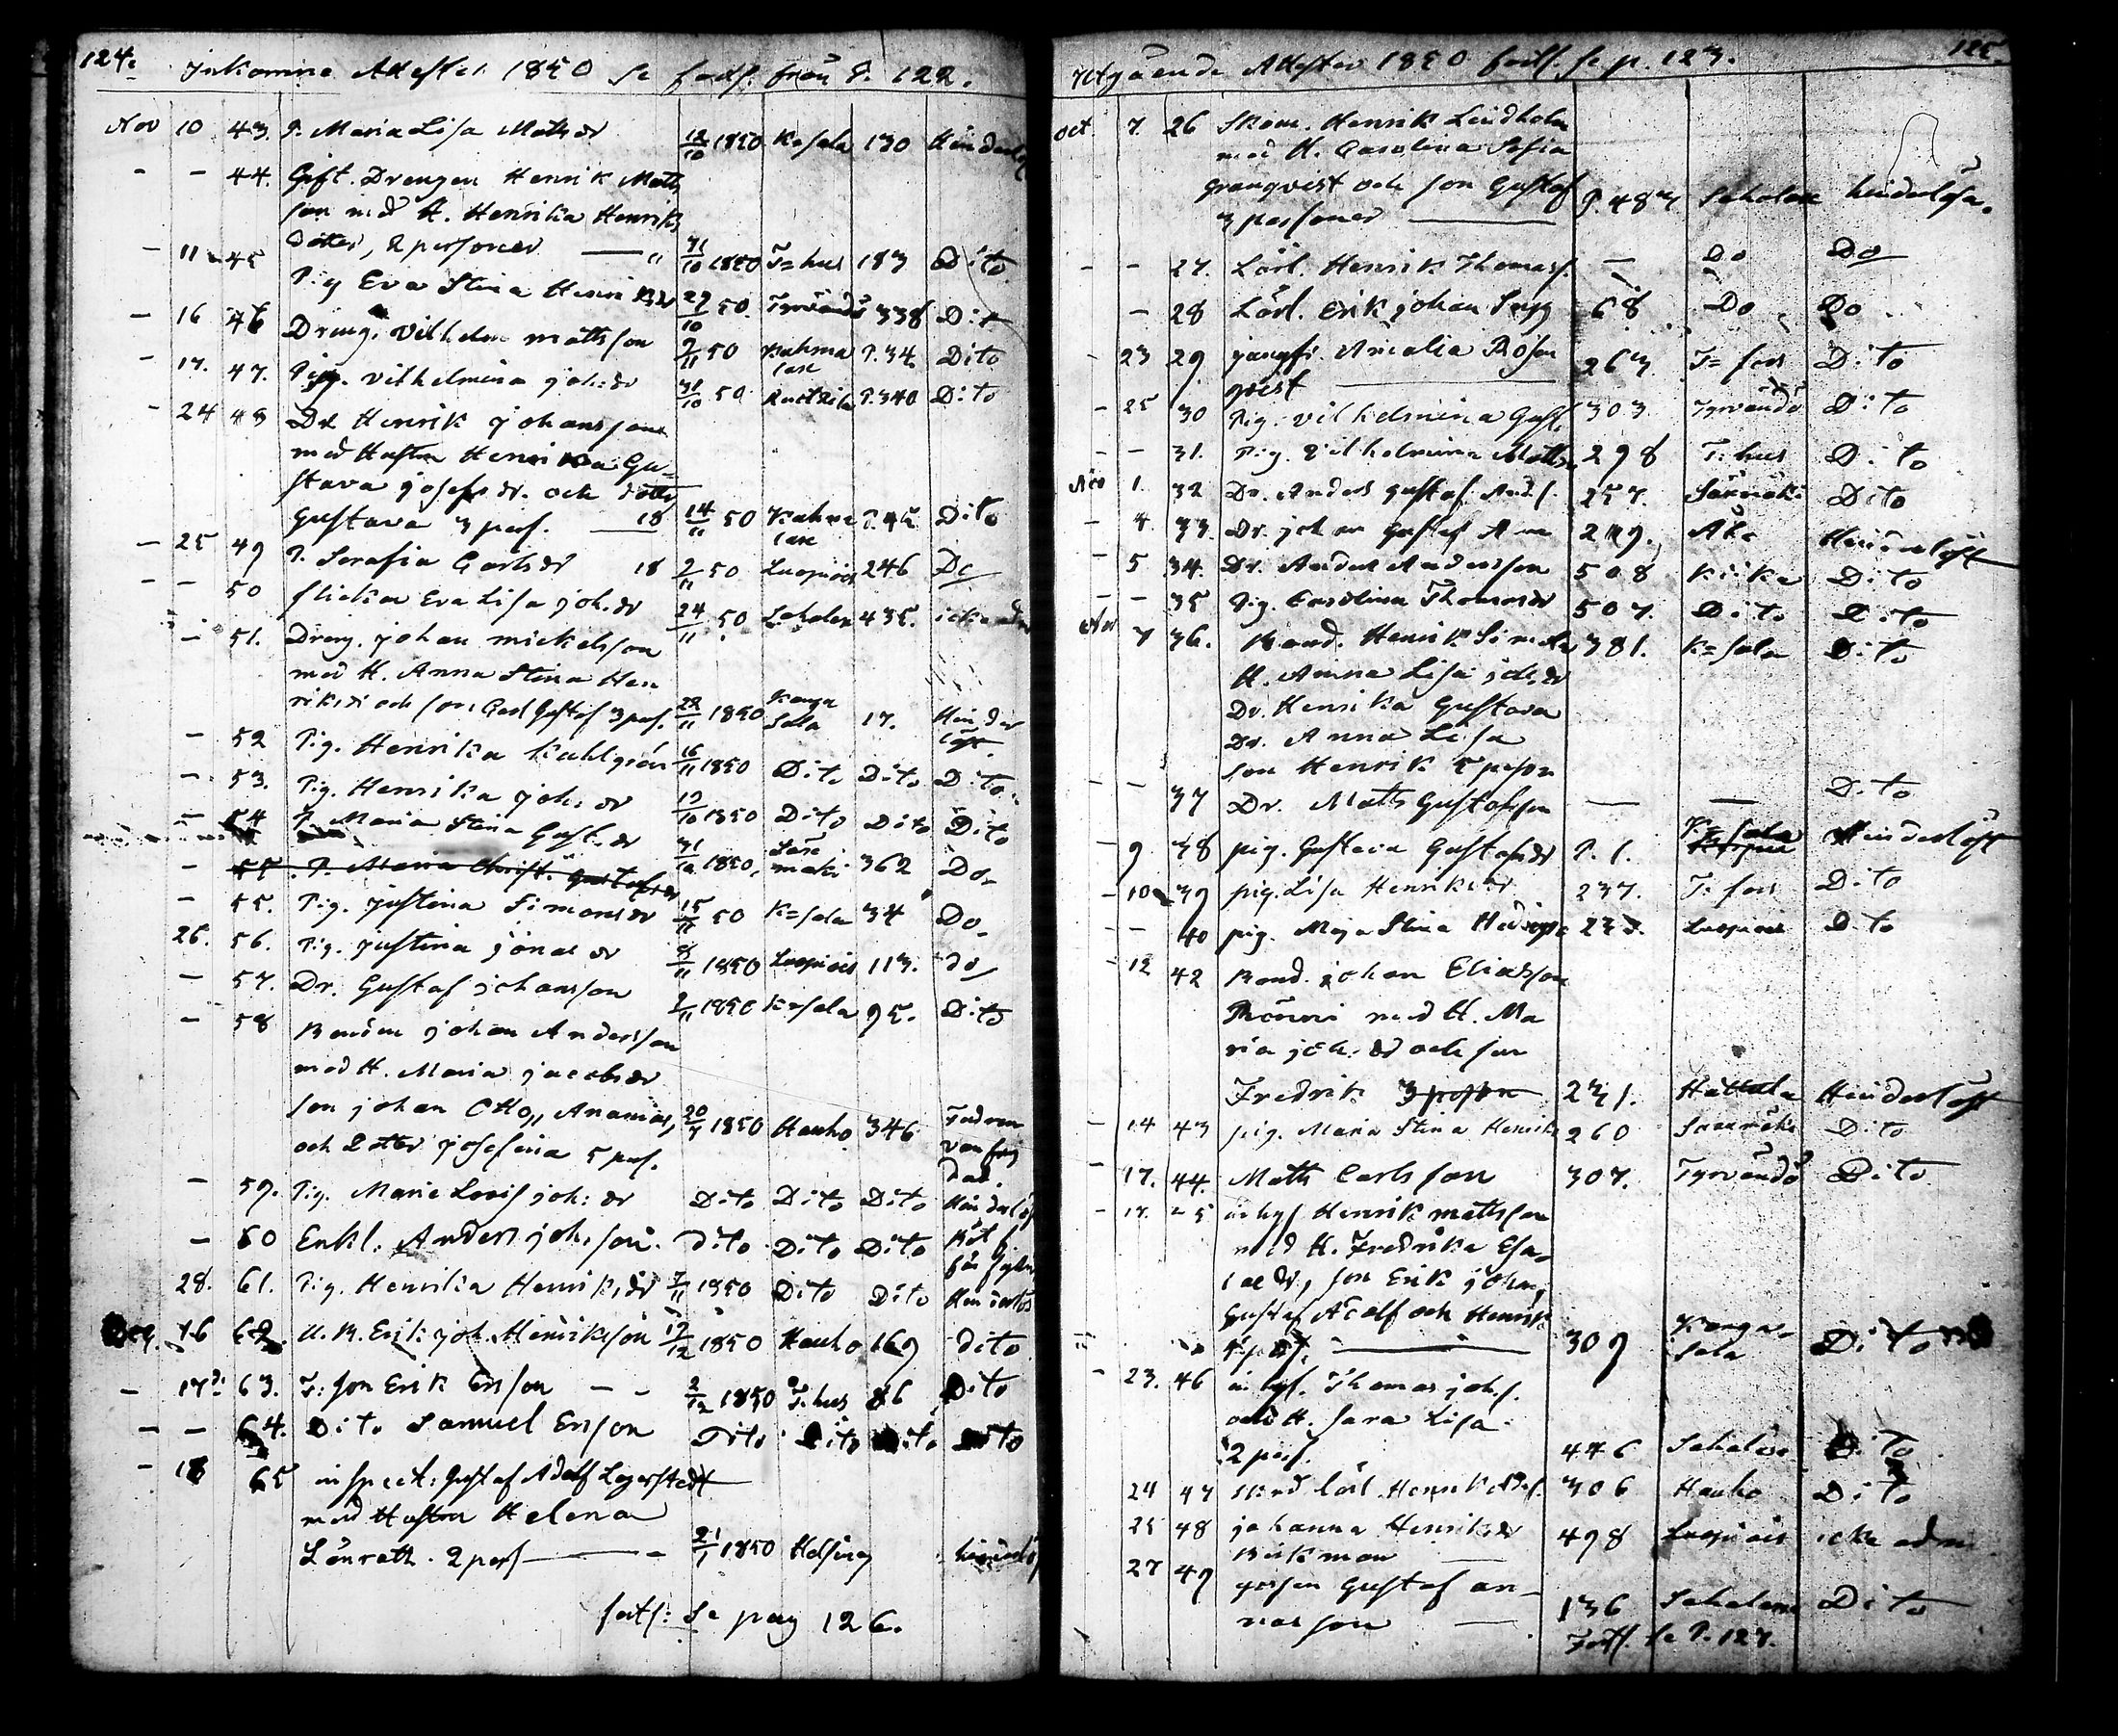 124.
Inkomne Attester 1850 Se forts. från P. 122.
Nov 10 43. P. Maria Lisa Mats dr 12/10 1850 K=sala 130 Hinderlös
- - 44. Gift. Drengen Henrik Mats
son med H. Henrika Henriks
dotter, 2 personer 31/10 1850 T=hus 183 Dito
- 11 45 Pig Eva Stina Henriksdr 29/10 50 Tyrvändö 338 Dito
- 16 46 Dreng. Vilhelm mattsson 9/11 50 Kuhma P. 34. Dito
lax
- 17. 47. Pig. Vilhelmina joh. dr 31/10 50 P. 340 Dito
- 24 48 Dr Henrik johansson
med Hustru Henrika Gu-
stava josefs dr. och dotter
Gustava 3 pers. 18 14/11 50 Dito
- 25 49 P. Serafia Carls dr 18 2/11 50 Luopiois 246 Do
- - 50 flickan Eva Lisa joh. dr 24/11 50 Sahalax 435. icke adm
- 51. Dreng. johan mickelsson
med H. Anna Stina Hen
riks dr och son Carl Gustaf 3 pers. 22/11 1850 Kanga sala 17. Hinder
löst
- 52 Pig. Henrika Kuhlgren 16/11 1850 Dito Dito Dito
- 53. Pig. Henrika joh. dr 19/10 1850 Dito Dito Dito
- 54 P. Maria Stina Gust. dr 31/10 1850, Säxmäki 362 Do
- 55. P. Maria Christ. Gustafs dr
- 55. Pig. justina Simons dr 15/11 50 K=sala 34 Do
26. 56. Pig. justina jonas dr 8/11 1850 Luopiois 113. do
- 57. Dr. Gustaf johansson 2/11 1850 K=sala 95. Dito
- 58 Bonden johan Andersson
med H. Maria jacobs dr
son johan Otto, Ananias,
och Dotter josefina 5 pers. 20/7 1850 Hauho 346
- 59. Pig. Maria Lovis joh: dr Dito Dito Dito Hinderlös
- 60 Enkl. Anders joh. son dito Dito Dito
28. 61. Pig. Henrika Henriks dr 7/11 1850 Dito Dito Hinderlös
Dec. 16 62. Erik joh. Henriksson 12/12 1850 Hauho 169 dito
- 17 63. T: son Erik Erson - - 2/12 1850 T:hus 86 Dito
- - 64. Dito Samuel Erson Dito Dito Dito Dito
- 18 65 inspect: Gustaf Adolf Lagerstedt
med Hustru Helena
Lönrath. 2 pers 21/1 1850 Helsing
forts: Se pag 126.
125.
Utgående Attester 1850 forts. se p. 123.
Oct. 7. 26 Skom. Henrik Lindholm
med H. Carolina Sofia
Granqvist och son Gustaf
3 personer P. 483 Sahalax hinderlösa.
- - 27. Lärl. Henrik Thomass. - Do Do
- 28 Lärl. Erik johan 68 Do Do
- 23 29 jungfr. Amalia Rosen
qvist 263 T=fors Dito
- 25 30 Pig. Vilhelmina Gust. 303 Tyrvändö Dito
- - 31. Pig. Vilhelmina Matts 298 T:hus Dito
Nov 1. 32 Dr. Anders Gustaf And.s. 257. Säxmäki Dito
- 4. 33. Dr. johan Gustaf 249. Hinderlöst
- 5 34. Dr. Anders Andersson 508 Dito
- - 35 Pig. Carolina Thomas dr 507. Dito Dito
Nov 7 36. Bond. Henrik 381. K=sala Dito
H. Anna Lisa joh. dr
Dr. Henrika Gustava
Dr. Anna Lisa
son Henrik 5 person
- - 37 Dr. Matts Gustafsson - - Dito
- 9 38 pig. Gustava Gustafs dr P. 1. K=sala Hinderlöst
- 10 39 pig. Lisa Henriks dr 237. T:fors Dito
- - 40 pig. Maja Stina Luopiois Dito
- 12 42 Bond. johan Eliasson
Rönni med H. Ma
ria joh. dr och son
Fredrik 3 person 231. Hattula Hinderlöst
- 14 43 pig. Maria Stina Henriks 260 Säxmäki Dito
- 17. 44. Matts Carlsson 307. Tyrvändö Dito
- 17. 45 inhys Henrik mattsson
med H. Fredrika Esa-
ias dr, son Erik johan,
Gustaf Adolf och Henrik
5 pers. 309 Kanga-
sala Dito
- 23. 46 inhys. Thomas johs.
och H. Sara Lisa
2 pers. 446 Sahalax Dito
24 47 lärl. Henrik 306 Hauho Dito
25 48 johanna Henriks dr 498 Luopiois icke adm
27 49 gossen Gustaf an-
nasson 136 Sahalax Dito
Forts. se P. 127.